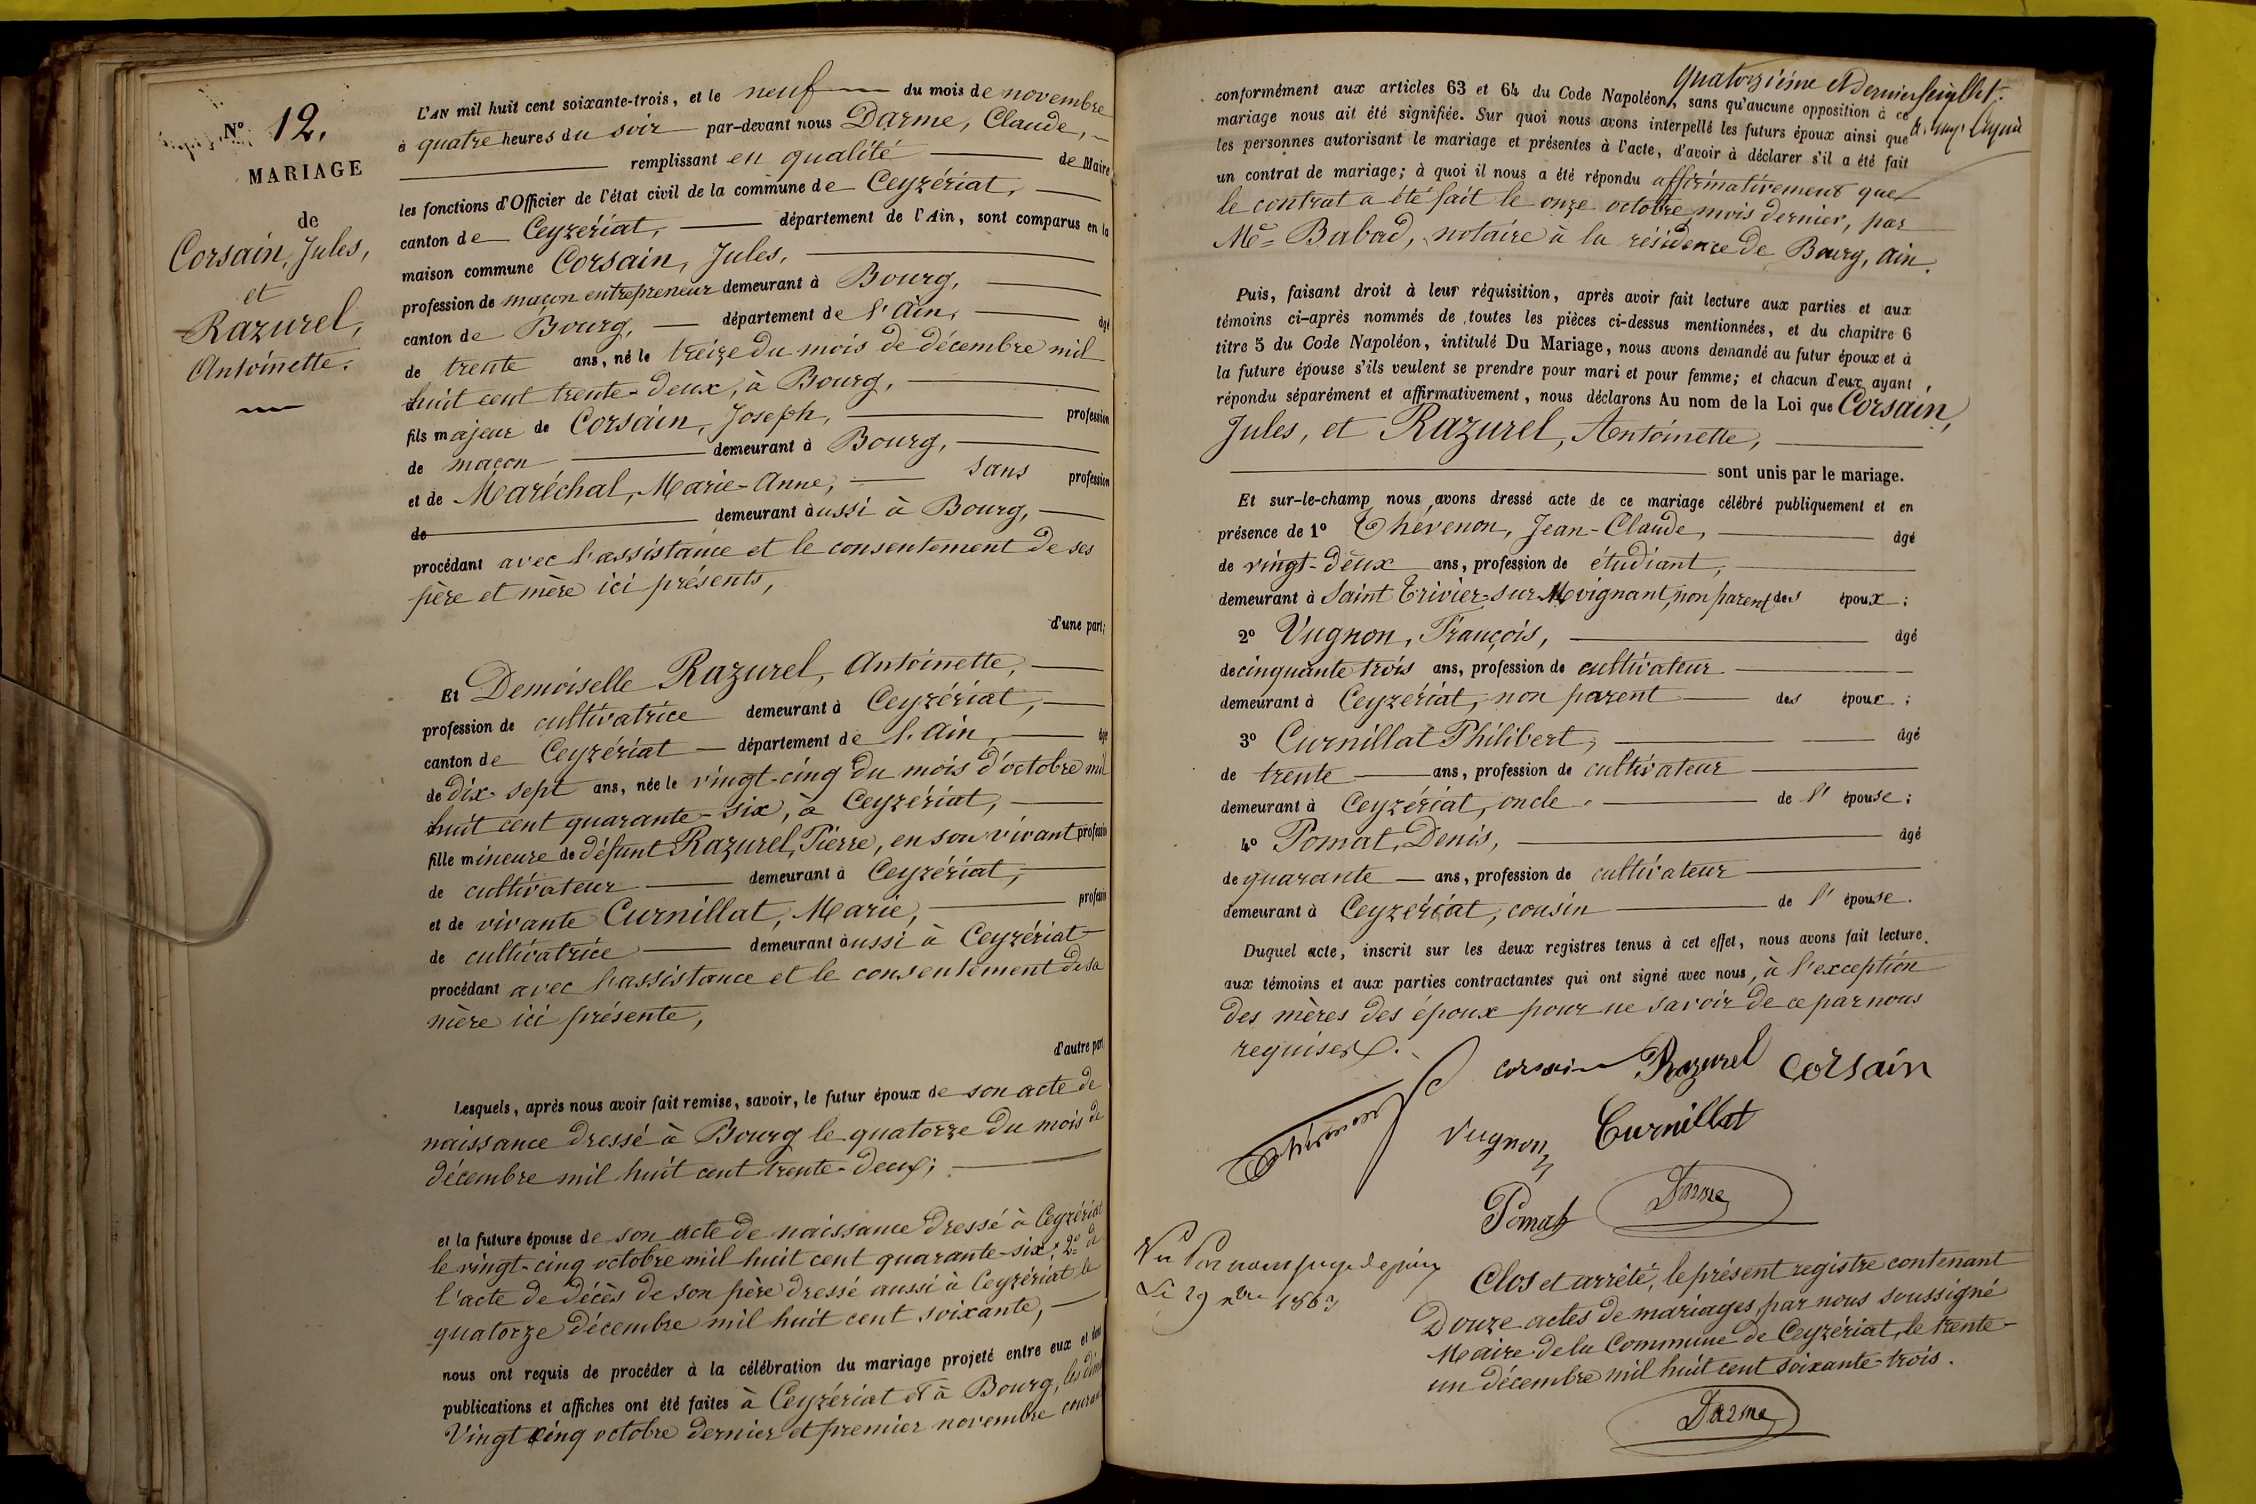 N° 12.
MARIAGE
de
Corsain, Jules,
et
Razurel,
Antoinette.
L'AN mil huit cent soixante-trois, et le neuf du mois de novembre
à quatre heures du soir par-devant nous Darme, Claude,
remplissant en qualité de Maire
les fonctions d'Officier de l'état civil de la commune de Ceyzériat,
canton de Ceyzériat, département de l'Ain, sont comparus en la
maison commune Corsain, Jules,
profession de maçon entrepreneur demeurant à Bourg,
canton de Bourg, département de l'Ain, âgé
de trente ans, né le treize du mois de décembre mil
huit cent trente-deux, à Bourg,
fils majeur de Corsain, Joseph, profession
de maçon demeurant à Bourg,
et de Maréchal, Marie-Anne, sans profession
de demeurant aussi à Bourg,
procédant avec l'assistance et le consentement de ses
père et mère ici présents,
d'une part;
Et Demoiselle Razurel, Antoinette,
profession de cultivatrice demeurant à Ceyzériat,
canton de Ceyzériat département de l'Ain, âgé
de dix-sept ans, née le vingt-cinq du mois d'octobre mil
huit cent quarante-six, à Ceyzériat,
fille mineure de défunt Razurel, Pierre, en son vivant profession
de cultivateur demeurant à Ceyzériat,
et de vivante Curnillat, Marie, profession
de cultivatrice demeurant aussi à Ceyzériat
procédant avec l'assistance et le consentement de sa
mère ici présente,
d'autre part
Lesquels, après nous avoir fait remise, savoir, le futur époux de son acte de
naissance dressé à Bourg le quatorze du mois de
décembre mil huit cent trente-deux;
et la future épouse de son acte de naissance dressé à Ceyzériat
le vingt-cinq octobre mil huit cent quarante-six; 2° de
l'acte de décès de son père dressé aussi à Ceyzériat le
quatorze décembre mil huit cent soixante,
nous ont requis de procéder à la célébration du mariage projeté entre eux et dont
publications et affiches ont été faites à Ceyzériat et à Bourg, les
Vingt cinq octobre dernier et premier novembre courant
Quatorzième et Dernier feuillet.
conformément aux articles 63 et 64 du Code Napoléon, sans qu'aucune opposition à ce
mariage nous ait été signifiée. Sur quoi nous avons interpellé les futurs époux ainsi que
les personnes autorisant le mariage et présentes à l'acte, d'avoir à déclarer s'il a été fait
un contrat de mariage; à quoi il nous a été répondu affirmativement que
le contrat a été fait le onze octobre mois dernier, par
Me Babad, notaire à la résidence de Bourg, Ain.
Puis, faisant droit à leur réquisition, après avoir fait lecture aux parties et aux
témoins ci-après nommés de toutes les pièces ci-dessus mentionnées, et du chapitre 6
titre 5 du Code Napoléon, intitulé Du Mariage, nous avons demandé au futur époux et à
la future épouse s'ils veulent se prendre pour mari et pour femme; et chacun d'eux ayant
répondu séparément et affirmativement, nous déclarons Au nom de la Loi que Corsain,
Jules, et Razurel, Antoinette,
sont unis par le mariage.
Et sur-le-champ nous avons dressé acte de ce mariage célébré publiquement et en
présence de 1° Thévenon, Jean-Claude, âgé
de vingt-deux ans, profession de étudiant,
demeurant à Saint Trivier-sur-Moignant, non parent des époux;
2° Vugnon, François, âgé
de cinquante trois ans, profession de cultivateur
demeurant à Ceyzériat, non parent des époux;
3° Curnillat Philibert, âgé
de trente ans, profession de cultivateur
demeurant à Ceyzériat, oncle de l'épouse;
4° Pomat, Denis, âgé
de quarante ans, profession de cultivateur
demeurant à Ceyzériat, cousin de l'épouse.
Duquel acte, inscrit sur les deux registres tenus à cet effet, nous avons fait lecture
aux témoins et aux parties contractantes qui ont signé avec nous, à l'exception
des mères des époux pour ne savoir de ce par nous
requises.
corsain Razurel Corsain
Thévenon Vugnon Curnillat
Pomat Darme
Vu Par nous juge de paix
Le 29 1863
Clos et arrêté, le présent registre contenant
Douze actes de mariages, par nous soussigné
Maire de la Commune de Ceyzériat, le trente-
un décembre mil huit cent soixante-trois.
Darme